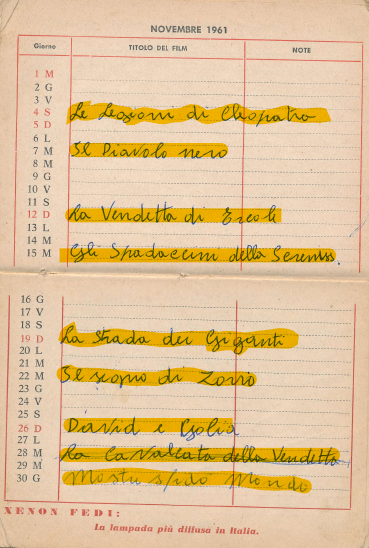 NOVEMBRE 1961
Giorno TITOLO DEL FILM NOTE
1 M
2 G
3 V
4 S Le Legioni di Cleopatra
5 D
6 L
7 M Il Diavolo nero
8 M
9 G
10 V
11 S
12 D La Vendetta di Ercole
13 L
14 M
15 M Gli Spadaccini della Sereniss.
16 G
17 V
18 S
19 D La Strada dei Giganti
20 L
21 M
22 M Il segno di Zorro
23 G
24 V
25 S
26 D David e Golia
27 L
28 M La Cavalcata della Vendetta
29 M
30 G Mostri sfida Mondo
XENON FEDI:
La lampada più diffusa in Italia.